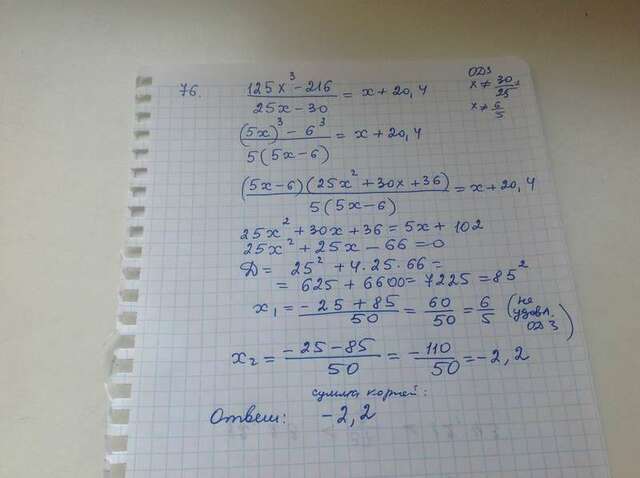 76. (125x³ - 216)/(25x - 30) = x + 20,4
ОДЗ
x ≠ 30/25
x ≠ 6/5
((5x)³ - 6³)/(5(5x - 6)) = x + 20,4
((5x - 6)(25x² + 30x + 36))/(5(5x - 6)) = x + 20,4
25x² + 30x + 36 = 5x + 102
25x² + 25x - 66 = 0
Д = 25² + 4·25·66 =
= 625 + 6600 = 7225 = 85²
x₁ = (-25 + 85)/50 = 60/50 = 6/5 (не удовл. ОДЗ)
x₂ = (-25 - 85)/50 = -110/50 = -2,2
сумма корней:
Ответ: -2,2